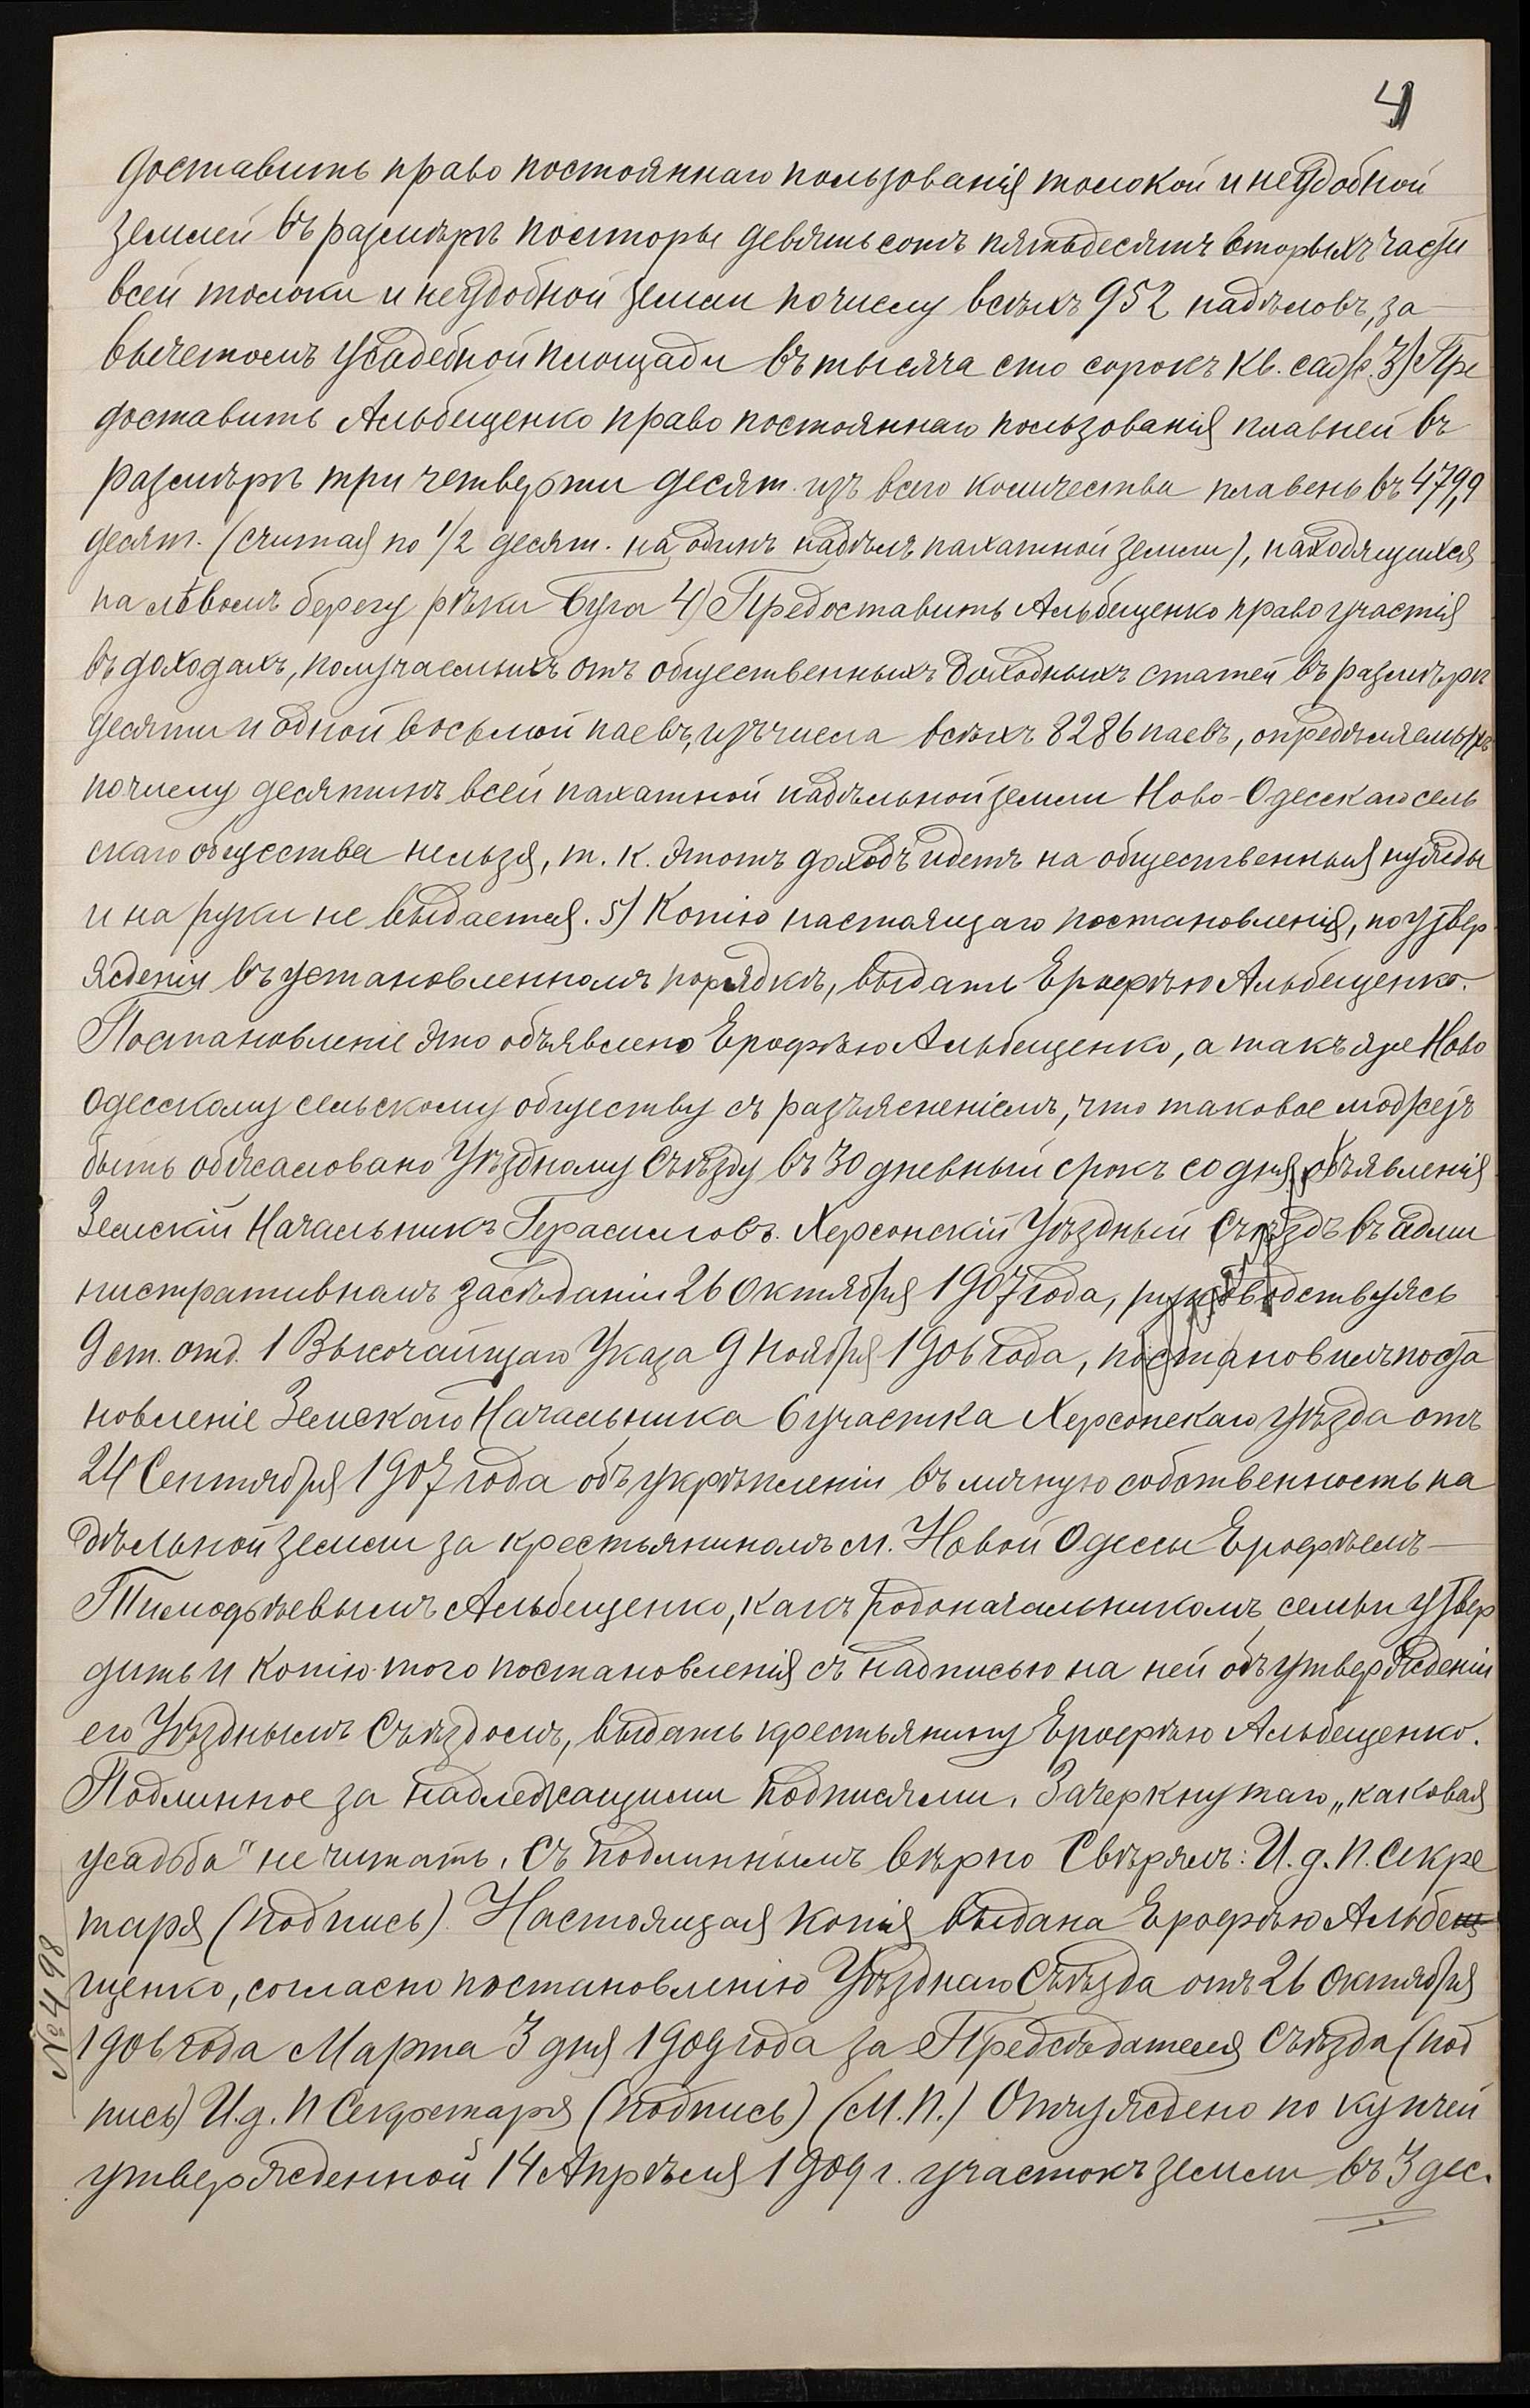 4
доставить право постояннаго пользованія толокой и неудобной
землей въ размѣрѣ полторы девятьсотъ пятьдесятъ вторыхъ части
всей толоки и неудобной земли по числу всѣхъ 952 надѣловъ, за
вычетомъ усадебной площади въ тысяча сто сорокъ кв. саж. 3) Пре
доставить Альбещенко право постояннаго пользованія плавней въ
размѣрѣ три четверти десят. изъ всего количества плавень въ 479,9
десят. (считая по 1/2 десят. на одинъ надѣлъ пахатной земли), находящихся
на лѣвомъ берегу рѣки Буга 4) Предоставить Альбещенко право участія
въ доходахъ, получаемыхъ отъ общественныхъ доходныхъ статей въ размѣрѣ
десяти и одной восьмой паевъ, изъ числа всѣхъ 8286 паевъ, опредѣляемыхъ
по числу десятинъ всей пахатной надѣльной земли Ново-Одесскаго сель
скаго общества нельзя, т. к. этотъ доходъ идетъ на общественныя нужды
и на руки не выдается. 5) Копію настоящаго постановленія, по утвер
жденіи въ установленномъ порядкѣ, выдать Ерофѣю Альбещенко.
Постановленіе это объявлено Ерофѣю Альбещенко, а такъ же Ново
Одесскому сельскому обществу съ разъясненіемъ, что таковое можетъ
быть обжаловано Уѣздному Съѣзду въ 30 дневный срокъ со дня объявленія
Земскій Начальникъ Герасимовъ. Херсонскій Уѣздный Съѣздъ въ адми
нистративномъ засѣданіи 26 Октября 1907 года, руководствуясь
9 ст. отд. 1 Высочайшаго Указа 9 Ноября 1906 года, постановилъ поста
новленіе Земскаго Начальника 6 участка Херсонскаго уѣзда отъ
24 Сентября 1907 года объ укрѣпленіи въ личную собственность на
дѣльной земли за крестьяниномъ м. Новой Одессы Ерофѣемъ
Тимофѣевымъ Альбещенко, какъ родоначальникомъ семьи утвер
дить и копію того постановленія съ надписью на ней объ утвержденіи
его Уѣзднымъ Съѣздомъ, выдать крестьянину Ерофѣю Альбещенко.
Подлинное за надлежащими подписями. Зачеркнутаго „каковая
усадьба" не читать. Съ подлиннымъ вѣрно Свѣрялъ: И. д. п. Секре
таря (подпись). Настоящая копія выдана Ерофѣю Альбещ
щенко, согласно постановленію Уѣзднаго Съѣзда отъ 26 Октября
1906 года Марта 3 дня 1909 года за Предсѣдателя Съѣзда (под
пись) И. д. п Секретаря (подпись) (М. П.) Отчуждено по купчей
утвержденной 14 Апрѣля 1909 г. участокъ земли въ 3 дес.
№ 498